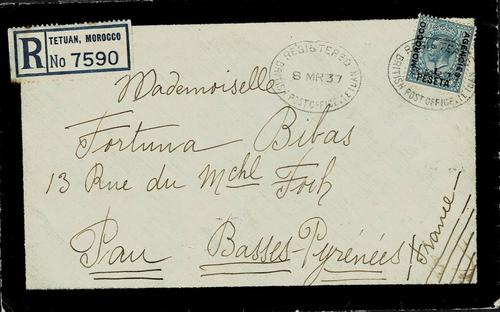 R TETUAN, MOROCCO
No 7590
REGISTERED
8 MR 37
BRITISH POST OFFICE TETUAN
MOROCCO AGENCIES
PESETA
BRITISH POST OFFICE
Mademoiselle
Fortuna Bibas
13 Rue du Mchl Foch
Pau Basses-Pyrénées
France